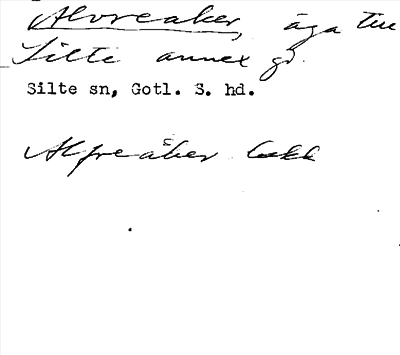 Alvreaker, äga till
Silte annex gd.
Silte sn, Gotl. S. hd.
Alfreåker